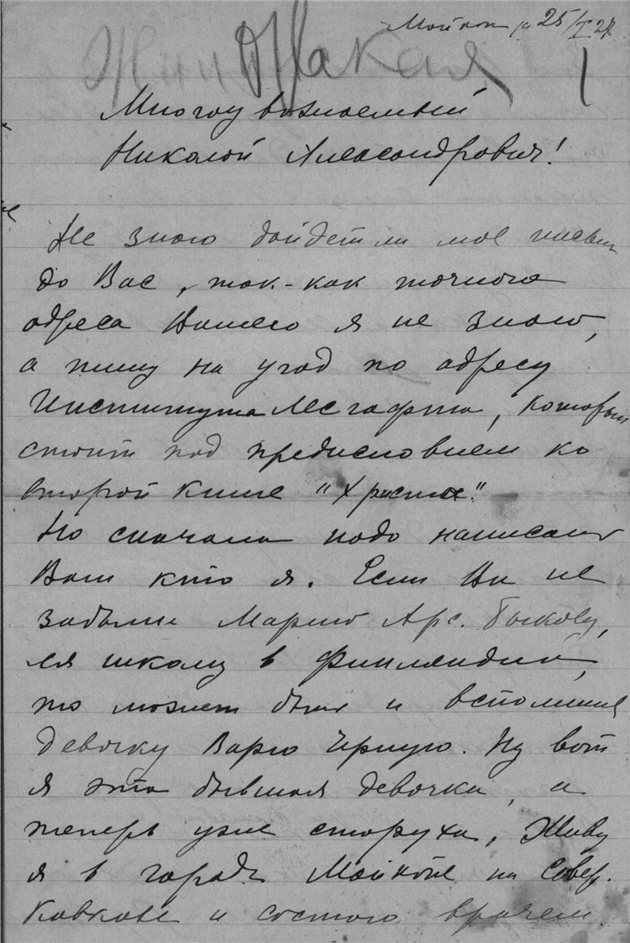 Майкоп 25/I 27
Многоуважаемый
Николай Александрович!
Не знаю дойдет ли мое письмо
до Вас, так-как точного
адреса Вашего я не знаю,
а пишу на угад по адресу
Института Лесгафта, который
стоит под предисловием ко
второй книге "Христа".
Но сначала надо написать
Вам кто я. Если Вы не
забыли Марию Арс. Быкову,
ея школу в Финляндии,
то может быть и вспомните
девочку Варю Черную. Ну вот
я эта бывшая девочка, а
теперь уже старуха, живу
я в городе Майкопе на Север.
Кавказе и состою врачем.